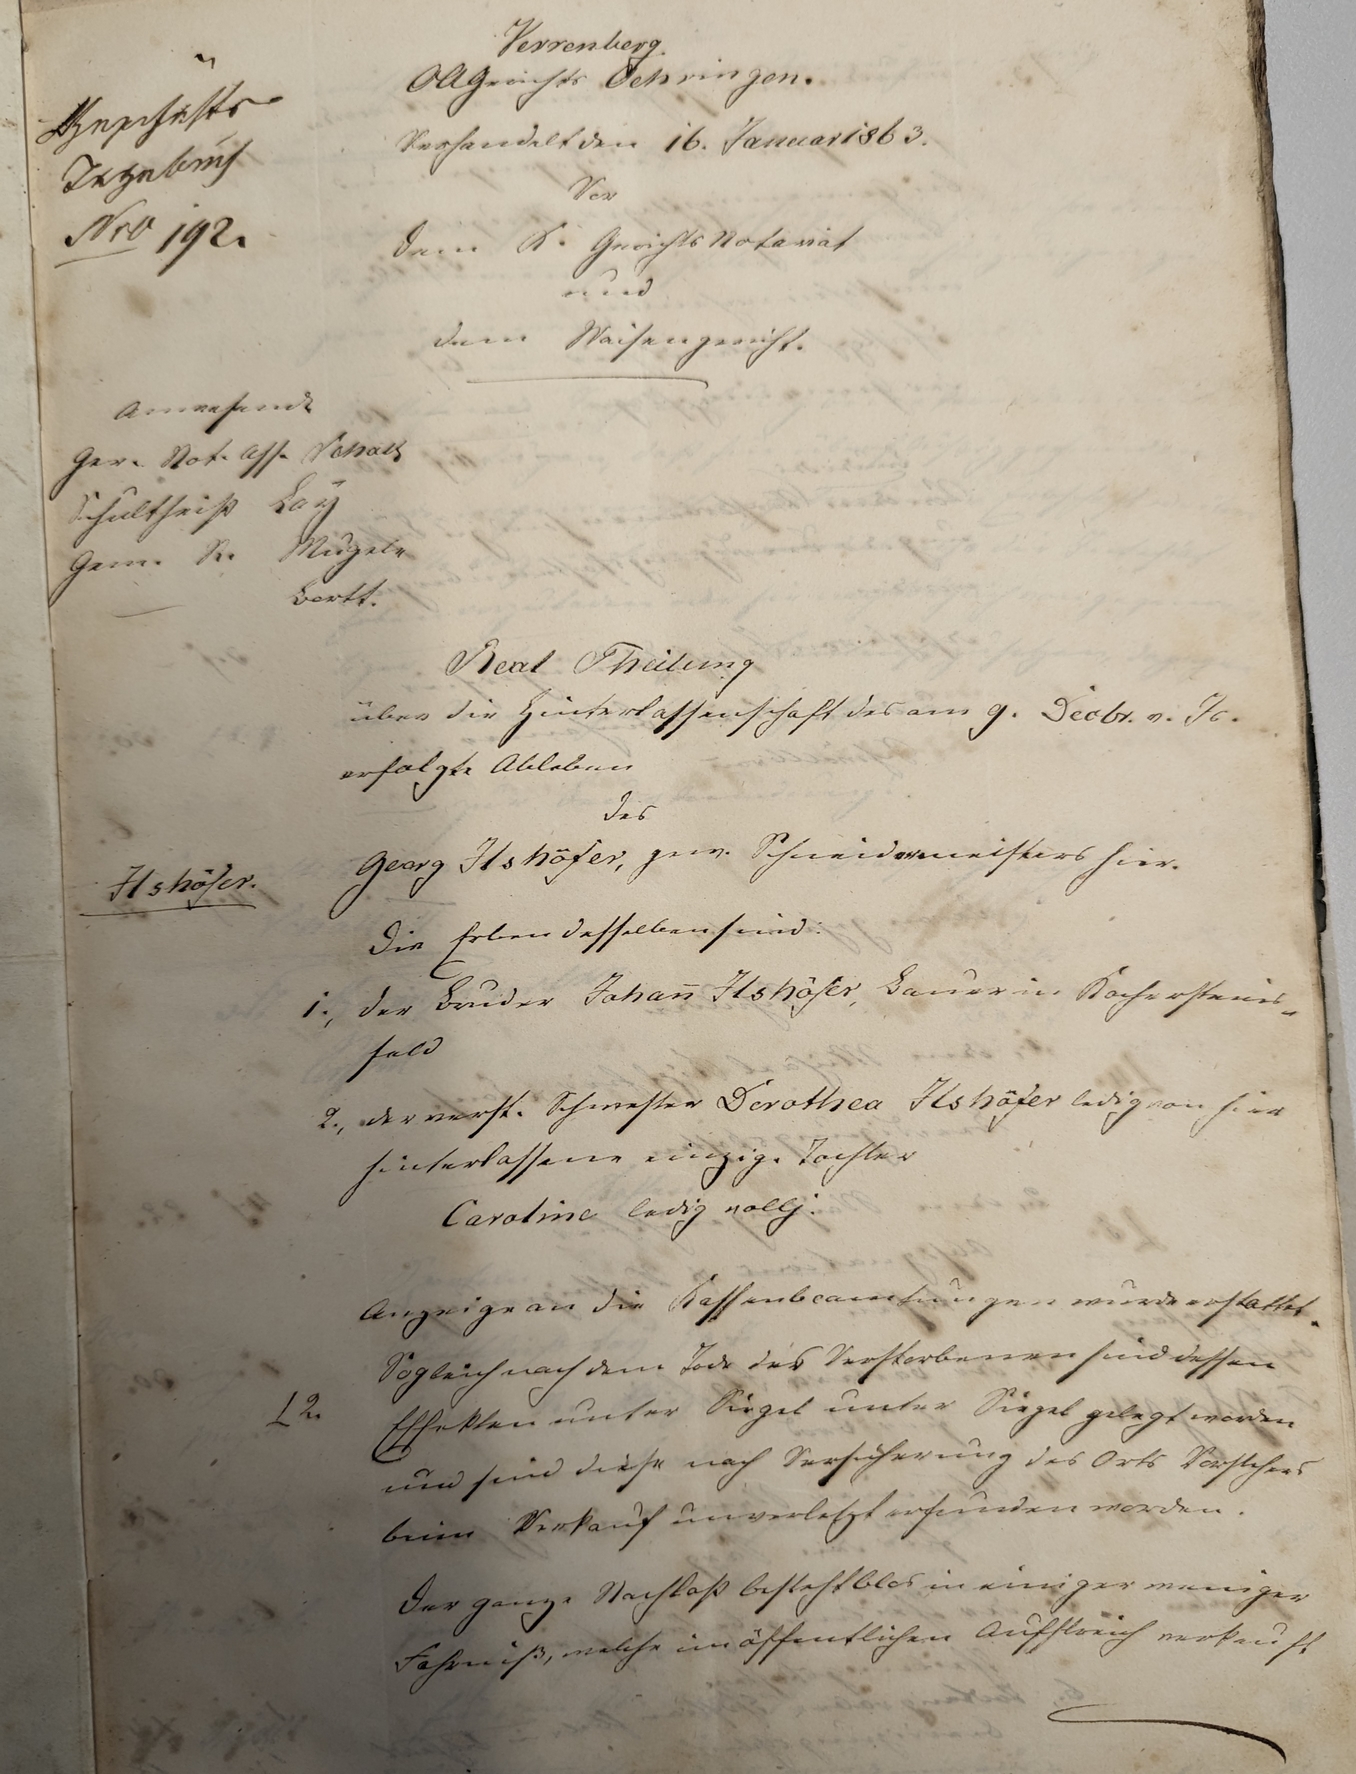 Verrenberg.
OAGerichts Oehringen.
Geschäfts
Tagebuch
Nro 192.
Verhandelt den 16. Januar 1863.
Vor
dem K. Gerichts Notariat
und
dem Waisengericht.
Anwesende
Ger. Not. Ass. Schall
Schultheiß Lay
Gem. R. Mugele
Bortt.
Real Theilung
über die Hinterlassenschaft des am 9. Decbr. v. Js.
erfolgte Ableben
des
Georg Ilshöfer, gew. Schneidermeisters hier.
Ilshöfer.
Die Erben desselben sind:
1., der Bruder Johann Ilshöfer, Bauer in Kochersteins-
feld
2., der verst. Schwester Dorothea Ilshöfer ledig von hier
hinterlassene einzige Tochter
Carotine ledig vollj.
Anzeige an die Kassenbeamtungen wurde erstattet.
Sogleich nach dem Tode des Verstorbenen sind dessen
Effekten unter Siegel unter Siegel gelegt worden
und sind diese nach Versicherung des Orts Vorstehers
beim Verkauf unverletzt erfunden worden.
Der ganze Nachlaß besteht blos in einiger weniger
Fahrniß, welche im öffentlichen Aufstreich verkauft